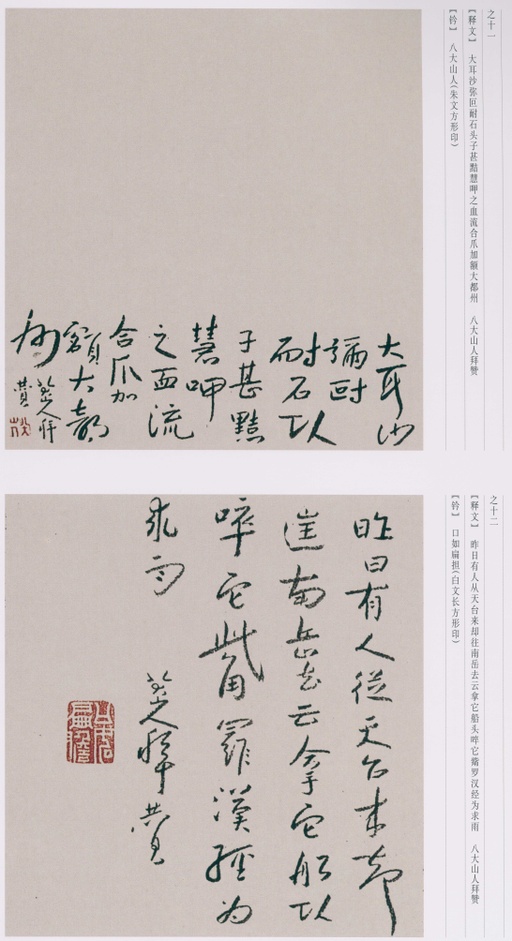 之十一
【释文】 大耳沙弥叵耐石头子甚黠慧呷之血流合爪加额大都州 八大山人拜赞
【钤】 八大山人(朱文方形印)
大耳沙
彌叵
耐石头
子甚黠
慧呷
之血流
合爪加
額大都
州
八大山人拜
赞
之十二
【释文】 昨日有人从天台来却往南岳去云拿它船头啐它觜罗汉经为求雨 八大山人拜赞
【钤】 口如扁担(白文长方形印)
昨日有人從天台来却
往南岳去云拿它船头
啐它觜羅漢經为
求雨
八大山人拜赞